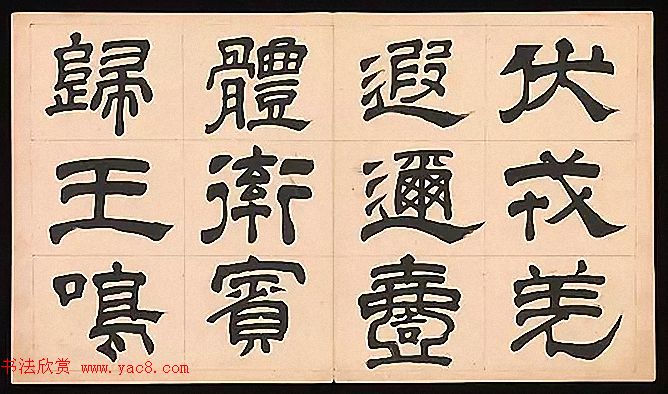 伏戎羌
遐邇壹
體賓
歸王鳴
书法欣赏 www.yac8.com